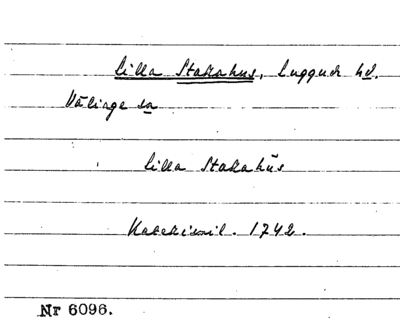 Lilla Stakahus, Luggude hd.
Välinge sn
Lilla Stakahus
1742.
Nr 6096.